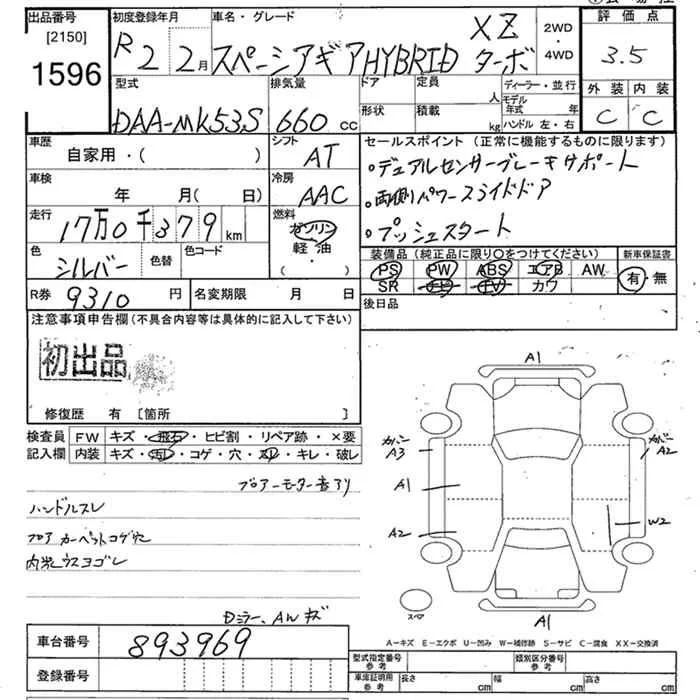 出品番号 初度登録年月 車名・グレード 評価点
[2150] XZ 2WD
1596 R2 2月 スペーシアギアHYBRID ターボ ・ 3.5
4WD
型式 排気量 ドア 定員 ディーラー・並行 外装 内装
人 モデル年式 年
DAA-MK53S 660cc 形状 積載 kg ハンドル 左・右 C C
車歴 シフト セールスポイント (正常に機能するものに限ります)
自家用・( ) AT ・デュアルセンサーブレーキサポート
車検 冷房
年 月(日) AAC ・両側パワースライドドア
走行 燃料
17万0千379km ガソリン ・プッシュスタート
色 色替 色コード 軽・油
シルバー ・( ) 装備品 (純正品に限り○をつけてください) 新車保証書
PS PW ABS エアB AW 有・無
R券 9310円 名変期限 月 日 SR ナビ TV カワ
注意事項申告欄(不具合内容等は具体的に記入して下さい) 後日品
初出品
修復歴 有 [箇所 ]
検査員 FW キズ・飛石・ヒビ割・リペア跡・×要
記入欄 内装 キズ・汚レ・コゲ・穴・スレ・キレ・破レ
ブロアーモーター音アリ
ハンドルスレ
フロアカーペットコゲ穴
内装ウスヨゴレ
Dミラー、AWキズ
A1
カバー カバー
A3 A2
A1
A2 W2
スペア
A1
車台番号 893969
A=キズ E=エクボ U=凹み W=補修跡 S=サビ C=腐食 XX=交換済
登録番号
型式指定番号 参考 類別区分番号 参考
車庫証明用 参考 長さ cm 幅 cm 高さ cm